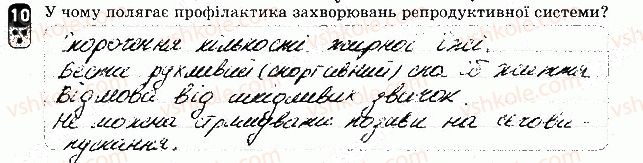 10 У чому полягає профілактика захворювань репродуктивної системи?
Скорочення кількості жирної їжі.
Вести рухливий (спортивний) спосіб життя
Відмова від шкідливих звичок.
Не можна стримувати позиви на сечови-
пускання.